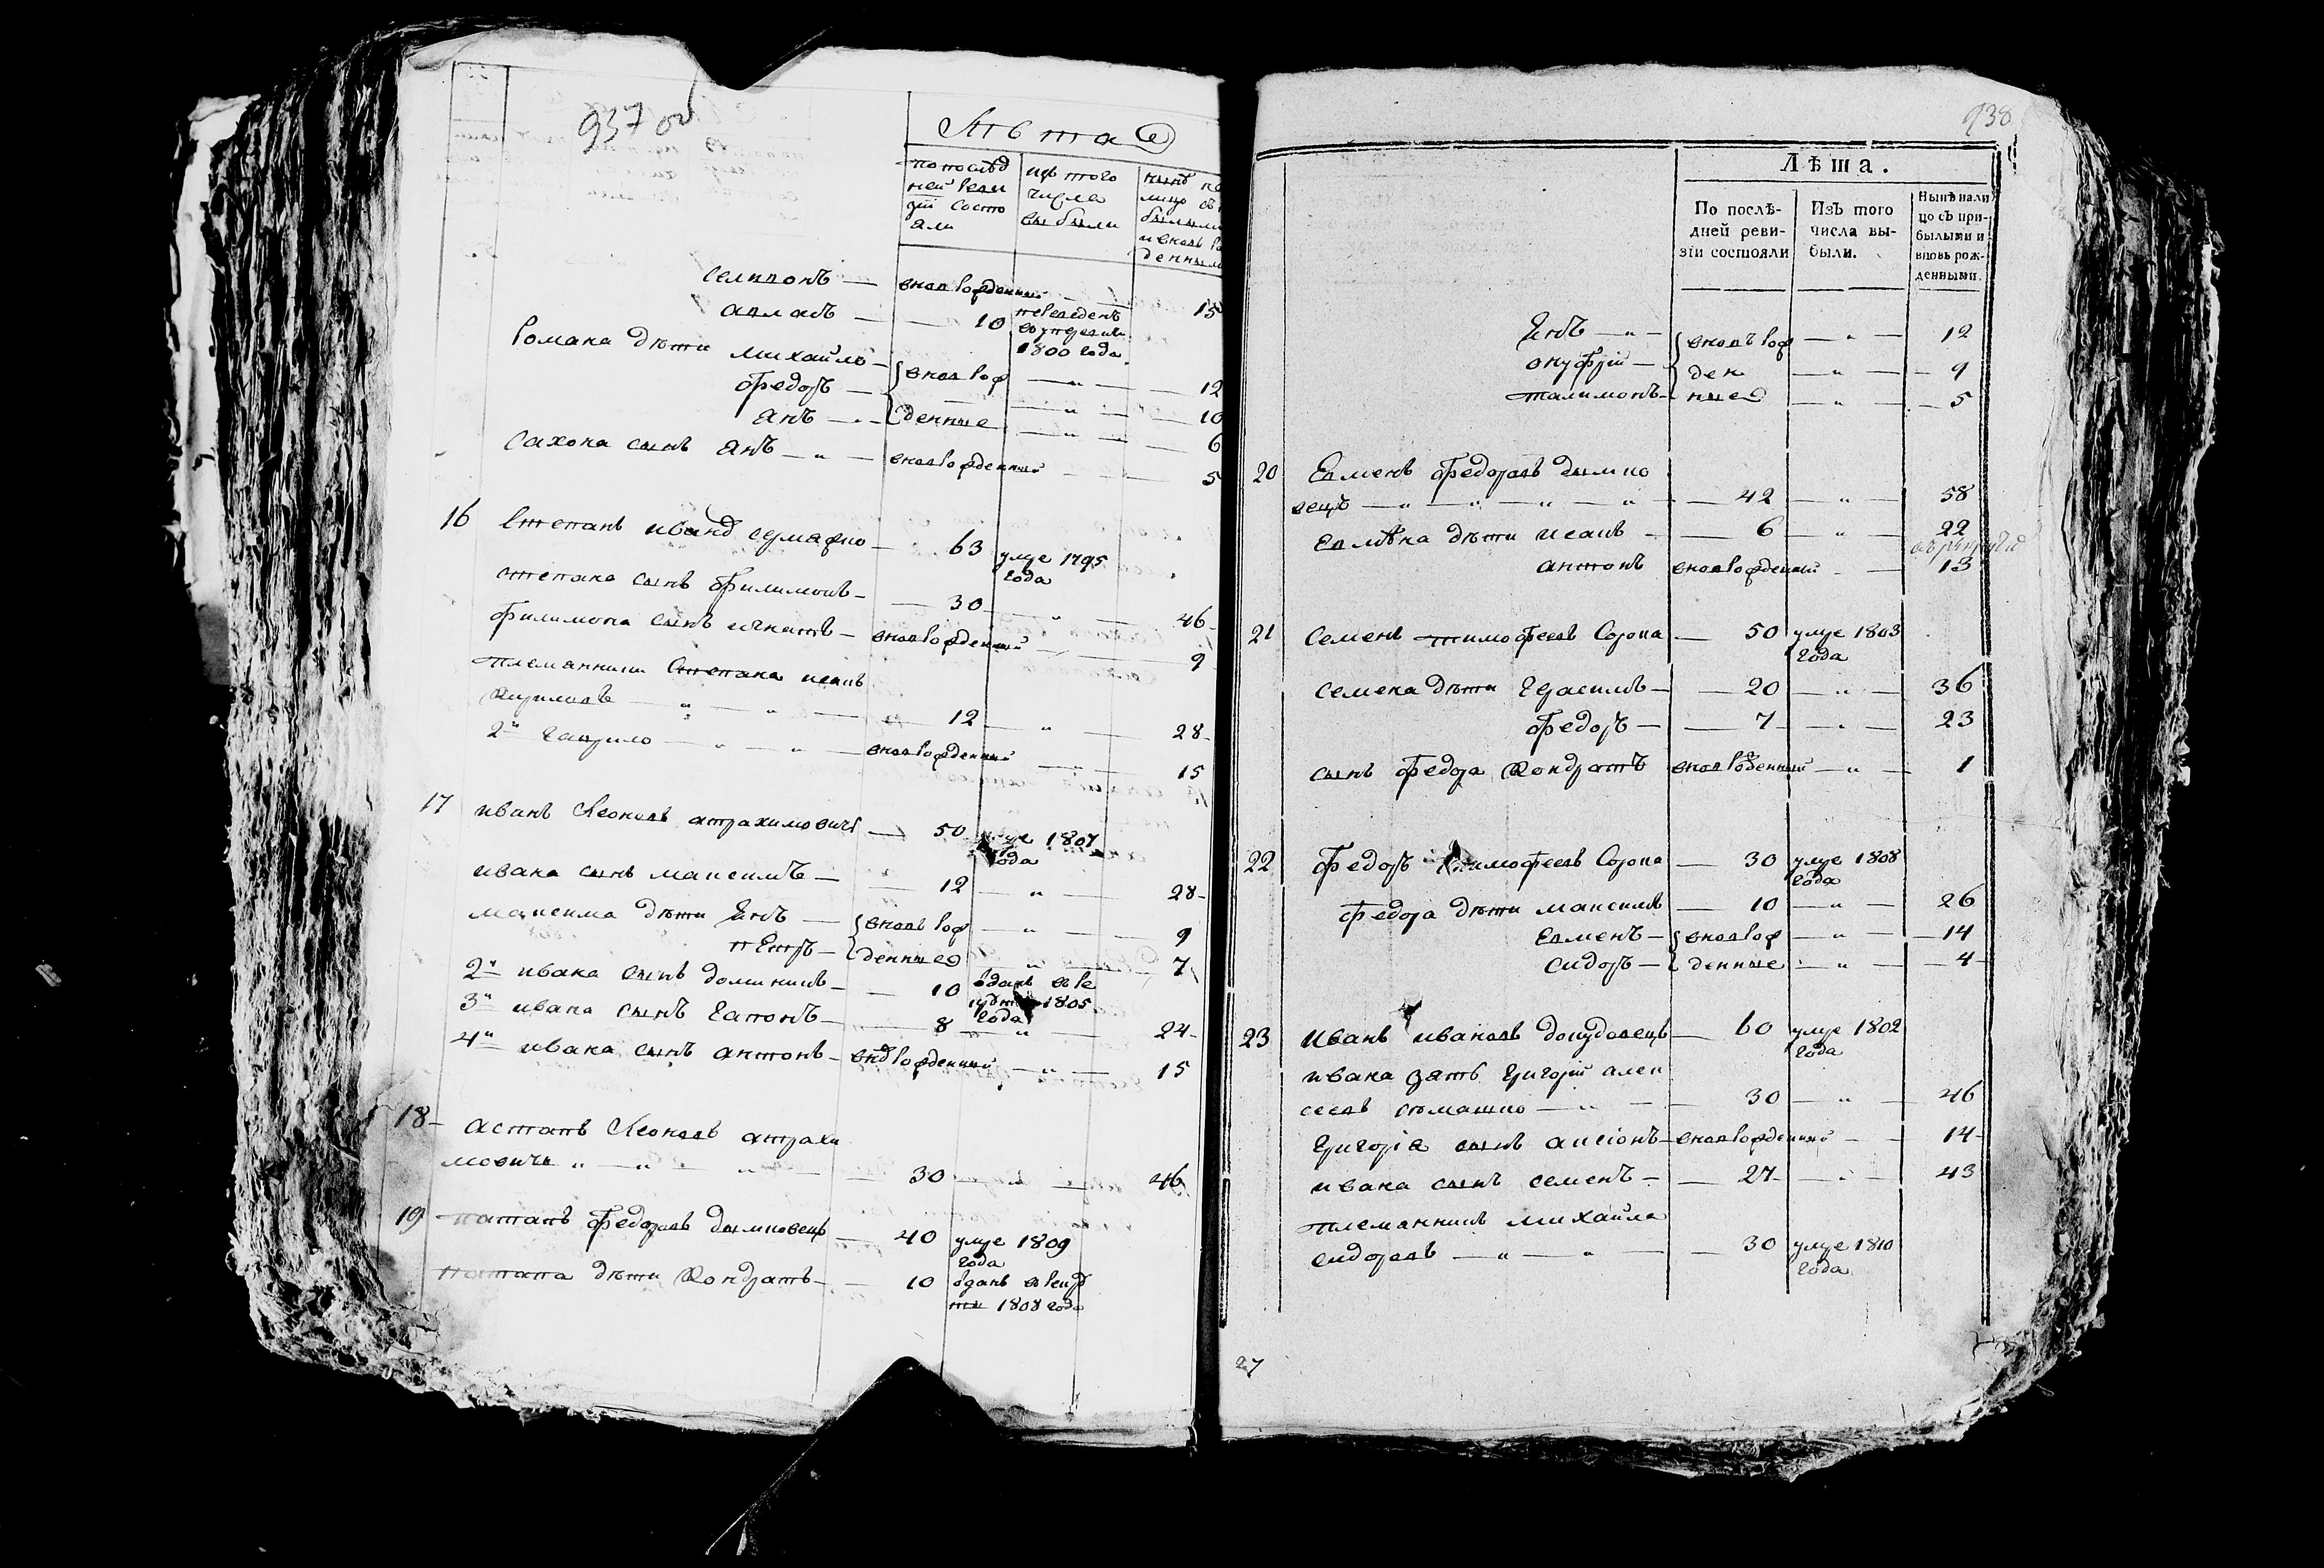 937 об
Лѣта
по послѣд
ней реви
зіи состо
яли
изъ того
числа
выбыли
нынѣ на
лицо съ
былыми
и вновь ро
денными
вновьрожденный — 15
10 переведенъ
1800 года
Романа дѣти Михайло — вновь рож — „ — 12
Федоръ — „ — 10
Янъ — денные — „ — 6
сынъ Янъ — „ — вновьрожденный — 5
16 Степанъ Иванъ — 63 умре 1795
года
Степана сынъ Филимонъ — 30 — „ — 46
Филимона сынъ Игнатъ — вновьрожденный — 9
Племянники Степана Исакъ
Кириловъ — „ — „ — 12 „ — 28
2й Гаврило — „ — „ — вновьрожденный — 15
17 Иванъ Леоновъ Атрахимовичъ — 50 умре 1807
года
Ивана сынъ Максимъ — 12 — „ — 28
Максима дѣти Янъ — вновь рож — „ — 9
Петръ — денные „ — 7
2й Ивана сынъ Доминикъ — 10 вданъ в ре
круты 1805
года
3й Ивана сынъ Гапонъ — 8 — „ — 24
4й Ивана сынъ Антонъ — вновьрожденный — „ — 15
18 Астапъ Леоновъ Атрахи
мовичъ „ — „ — 30 — „ — 46
19 Патапъ Федоровъ Дымковецъ — 40 умре 1809
года
Патапа дѣти Кондратъ — 10 вданъ в рекру
ты 1808 года
938
Лѣта.
По послѣ-
дней реви-
зіи состояли
Изъ того
числа вы-
были.
Нынѣ нали
цо съ при-
былыми и
вновь рож-
денными.
Янъ — „ — вновь рож — „ — 12
Онуфрій — ден — „ — 9
Палимонъ — ные — „ — 5
20 Евменъ Федоровъ Дымко
вецъ — „ — „ — „ — 42 — „ — 58
Евмѣна дѣти Исакъ — 6 — „ — 22
Антонъ вновьрожденный — 13
21 Семенъ Тимофеевъ Сорока — 50 умре 1803
года
Семена дѣти Герасимъ — 20 — „ — 36
Федоръ — 7 — „ — 23
сынъ Федора Кондратъ вновьрожденный — „ — 1
22 Федоръ Тимофеевъ Сорока — 30 умре 1808
года
Федора дѣти Максимъ — 10 — „ — 26
Евменъ — вновь рож — „ — 14
Сидоръ — денные — „ — 4
23 Иванъ Ивановъ — 60 умре 1802
года
Ивана зять Григорій Алек
сеевъ — „ — 30 — „ — 46
Григорія сынъ Аксіонъ — вновьрожденный — 14
Ивана сынъ Семенъ — 27 — „ — 43
племянникъ Михайла
Сидоровъ — „ — „ — 30 умре 1810
года
27